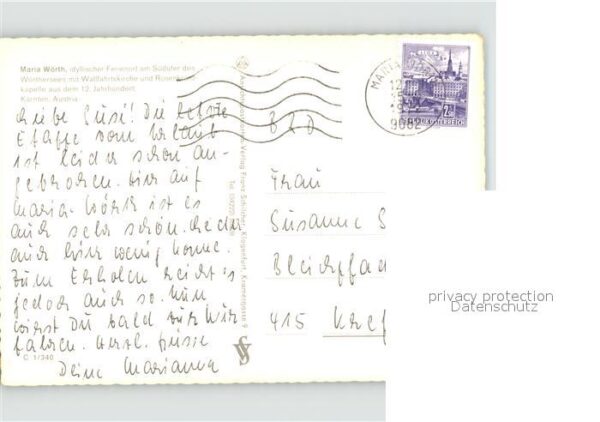 Maria Wörth, idyllischer Ferienort am Südufer des
Wörthersees mit Wallfahrtskirche und Rosenkranz-
kapelle aus dem 12. Jahrhundert.
Kärnten, Austria
Liebe Susi! Die letzte
Etappe vom Urlaub
ist leider schon an-
gebrochen. Hier auf
Maria-Wörth ist es
auch sehr schön. Leider
auch hier wenig Sonne.
Zum Erholen reicht es
jedoch auch so. Nun
wirst Du bald
fahren. Herzl. Grüsse
Deine Marianna
C 1/340
Verlag Franz Schilcher, Klagenfurt,
BRD
MARIA
9082
Frau
Susanne S
Bleichpfad
415 Kref
privacy protection
Datenschutz